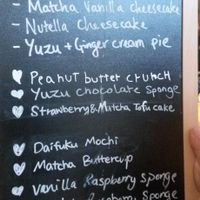 - Matcha Vanilla cheesecake
- Nutella Cheesecake
- Yuzu + Ginger cream pie
♥ Peanut butter crunch
♥ Yuzu chocolate sponge
♥ Strawberry & Matcha Tofu cake
♥ Daifuku Mochi
♥ Matcha Buttercup
♥ Vanilla Raspberry Sponge
Raspberry Sponge